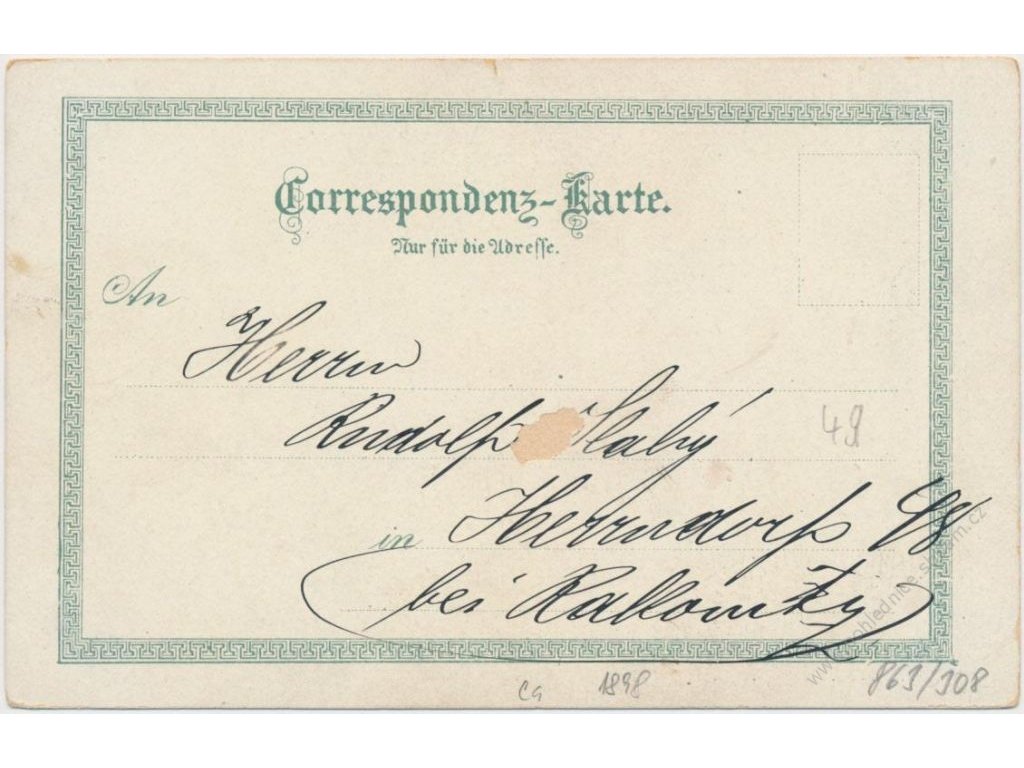 Correspondenz-Karte.
Nur für die Adresse.
An
Herrn
Rudolf Slabý
49
in Herrndorf 48
bei Rakonitz
ca 1898
863/308